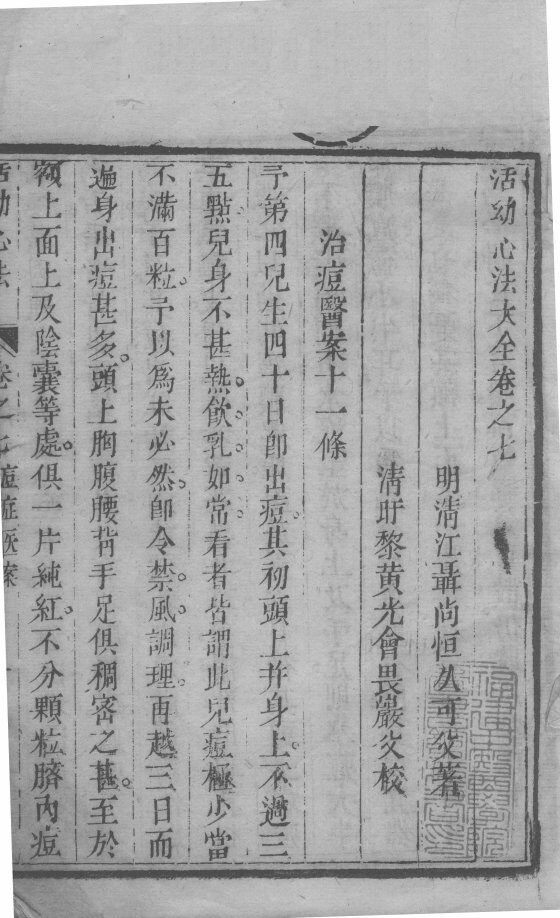 活幼心法大全卷之七
明清江聶尚恒久可父著
清盱黎黄光會畏巖父校
治痘醫案十一條
予第四兒生四十日卽出痘。其初頭上幷身上。不過三
五點兒身不甚熱。飲乳如常。看者皆謂此兒痘極少當
不滿百粒。予以爲未必然。卽令禁風。調理。再越三日而
遍身出痘甚多。頭上胸腹腰背手足俱稠密之甚。至於
額上面上及陰囊等處。俱一片純紅。不分顆粒臍內痘
活幼心法 卷之七 痘症醫案